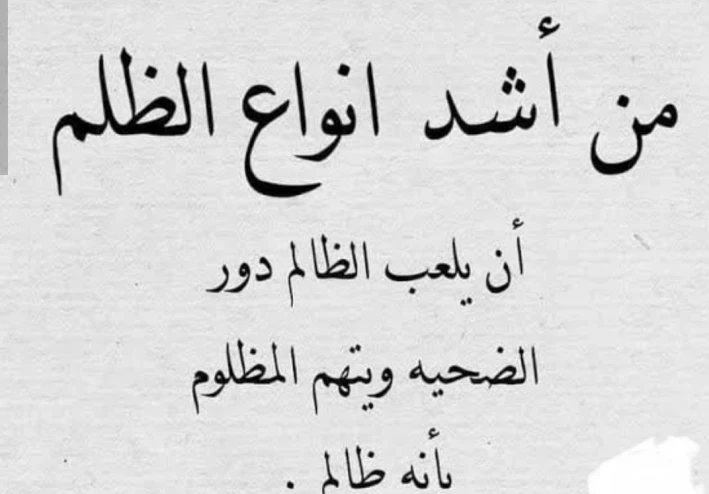 من أشد انواع الظلم
أن يلعب الظالم دور
الضحيه ويتهم المظلوم
بأنه ظالم .